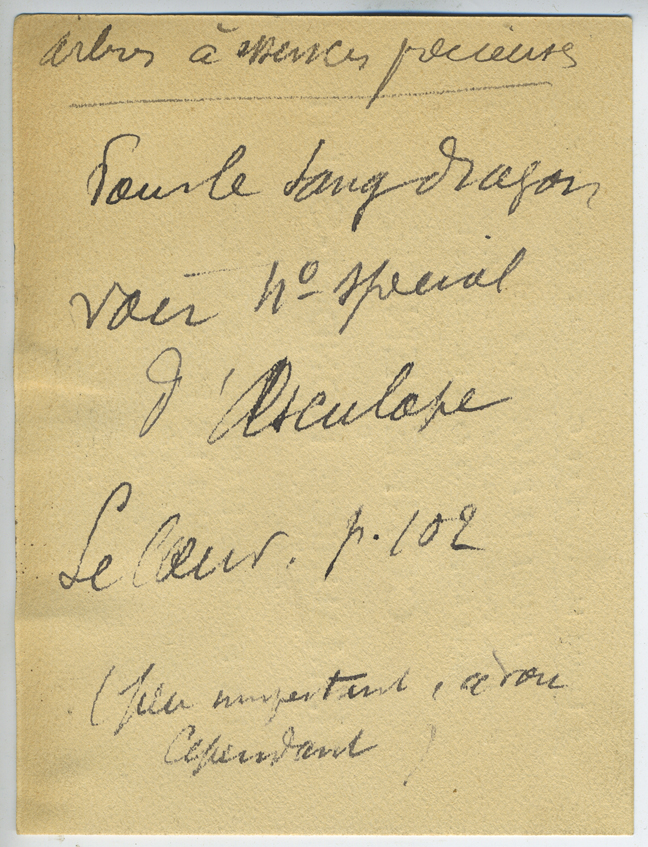 arbres à essences précieuses
Pour le sang dragon
voir nº spécial
d'Aesculape
Le Cœur. p. 102
(peu important, à voir
cependant)